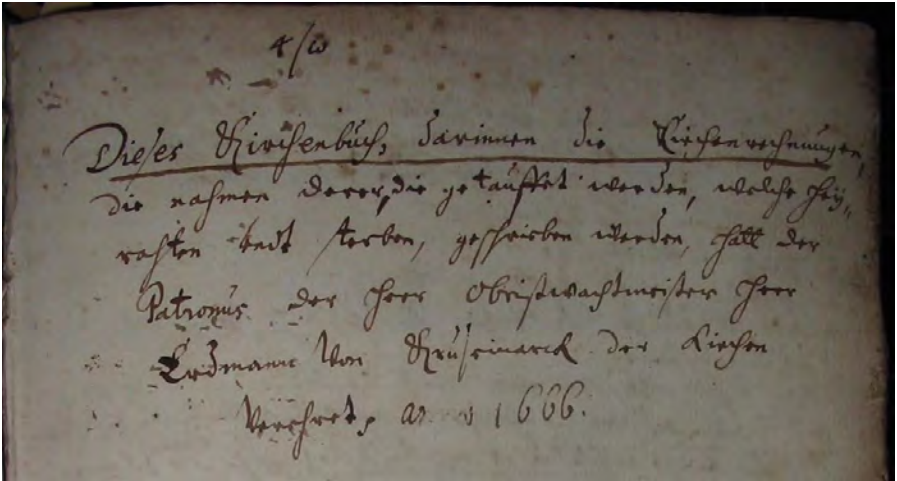 Dieses Kirchenbuch, darinnen die Kirchenrechnungen,
die nahmen derer, die getauffet werden, welche hey„
rahten undt sterben, geschrieben werden, hatt der
Patronus der Herr Obristwachtmeister Herr
Erdmann Von Kruseimarck der Kirchen
Verehret, 1666.